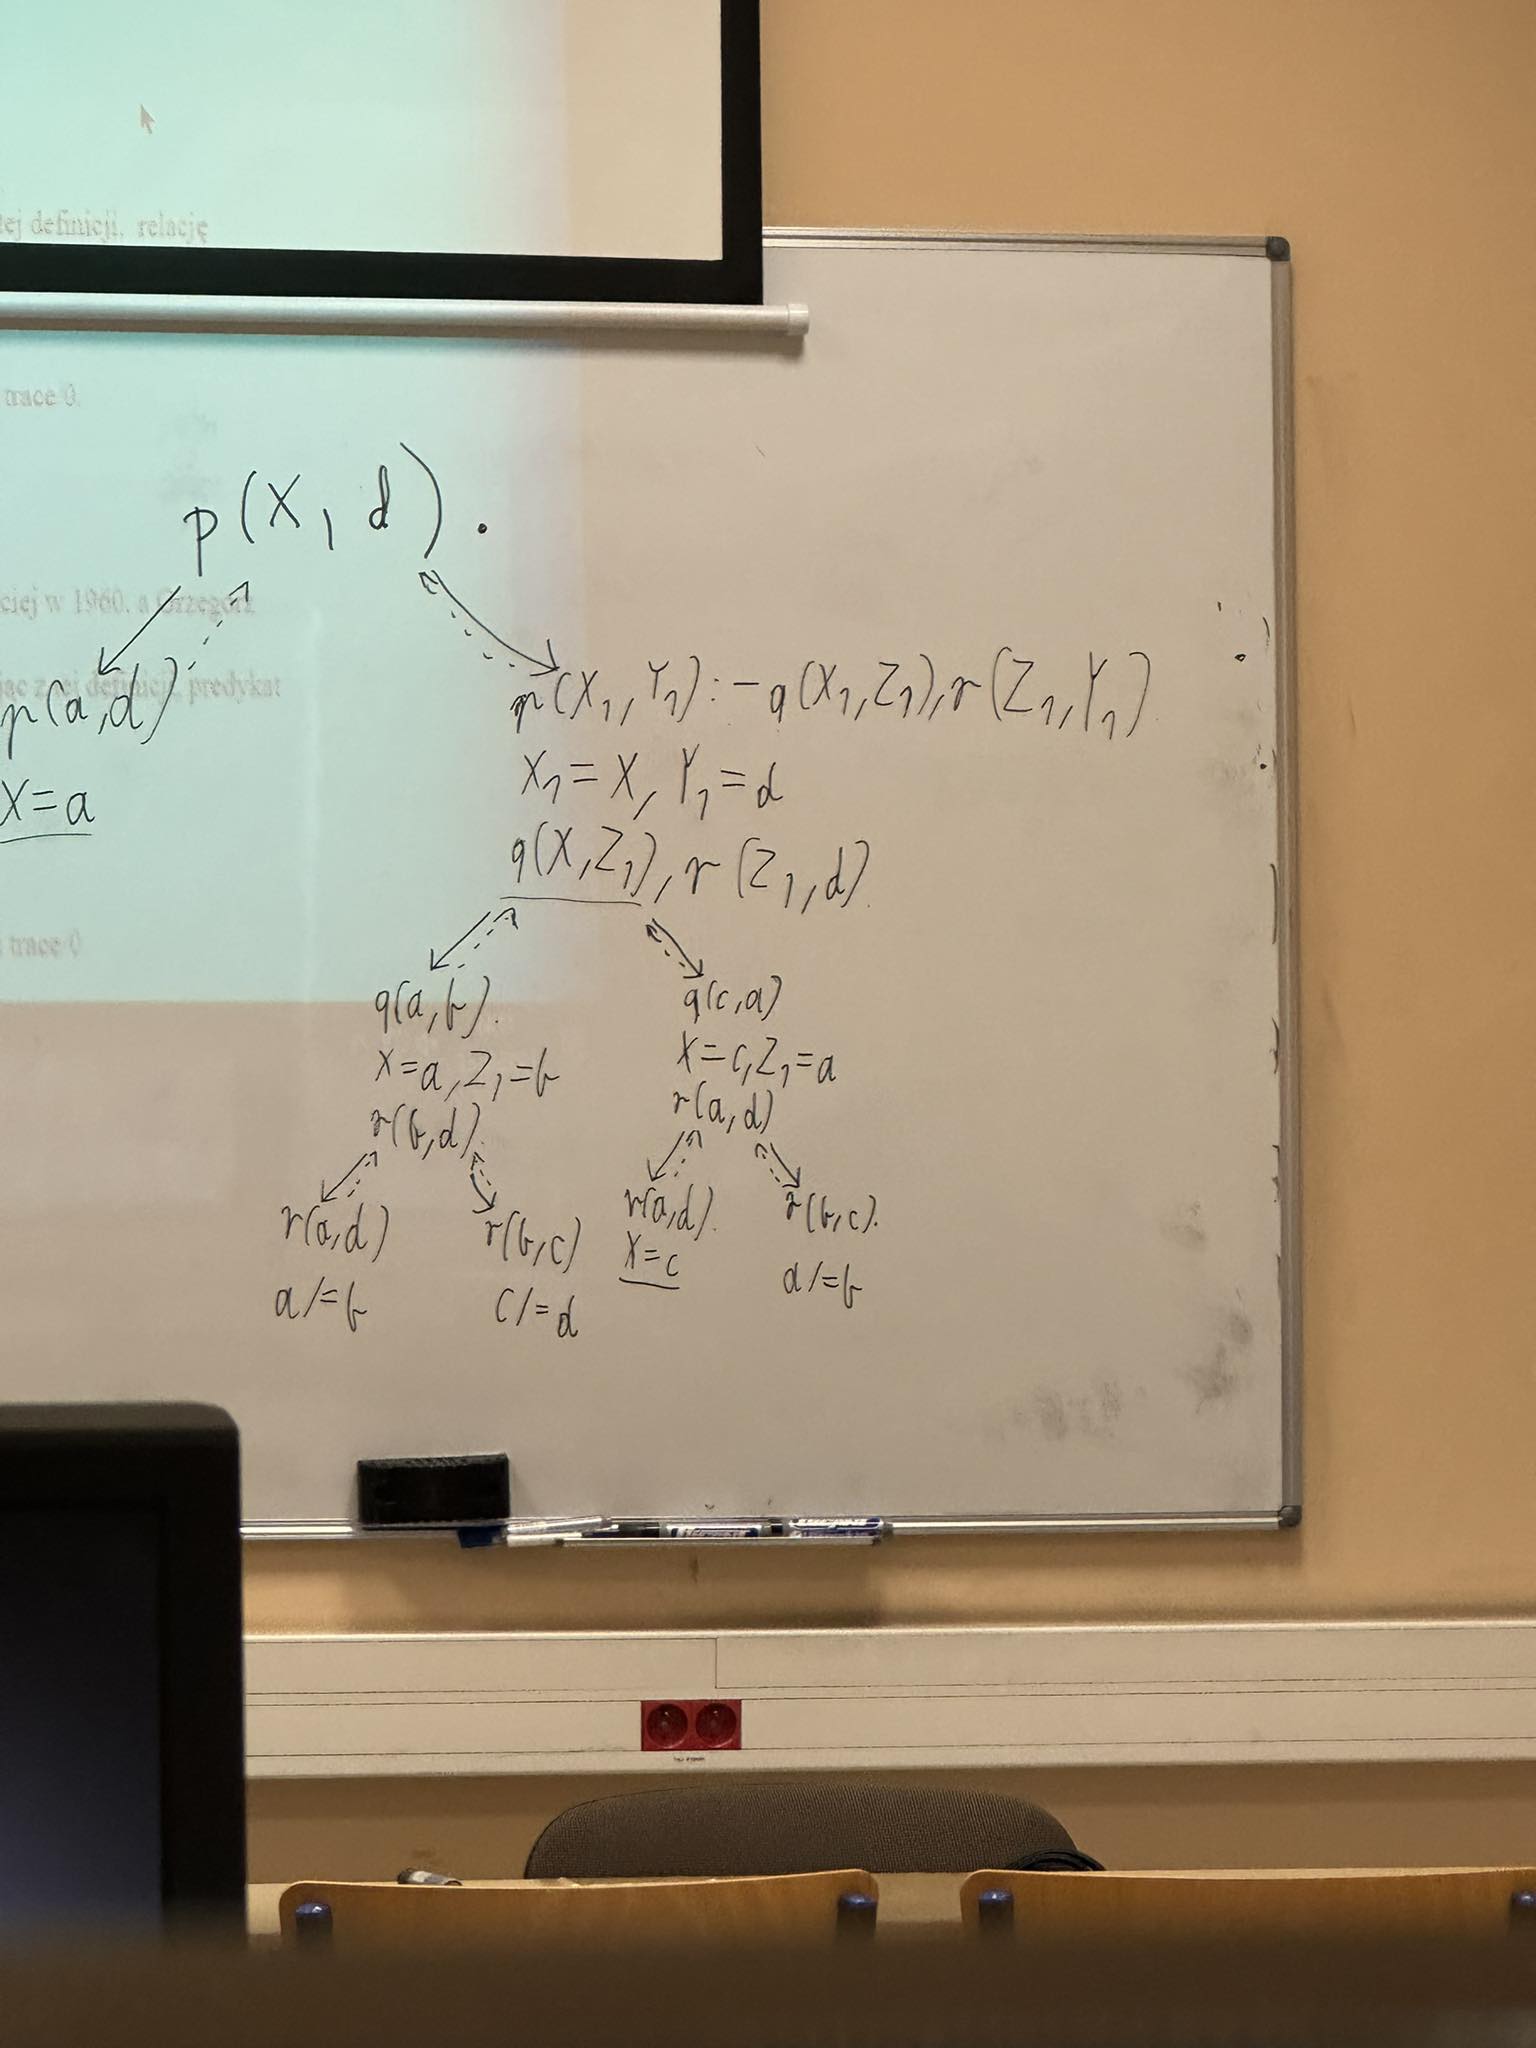 ej definicji. relację
trace 0.
p(X, d).
ciej w 1960. a Grzegorz
jąc z tej definicji, predykat
p(a,d)
X=a
p(X₁,Y₁):-q(X₁,Z₁),r(Z₁,Y₁)
X₁=X, Y₁=d
q(X,Z₁), r(Z₁,d).
trace 0
q(a,b).
X=a, Z₁=b
r(b,d).
q(c,a)
X=c, Z₁=a
r(a,d)
r(a,d)
a/=b
r(b,c)
c/=d
r(a,d).
X=c
r(b,c).
a/=b